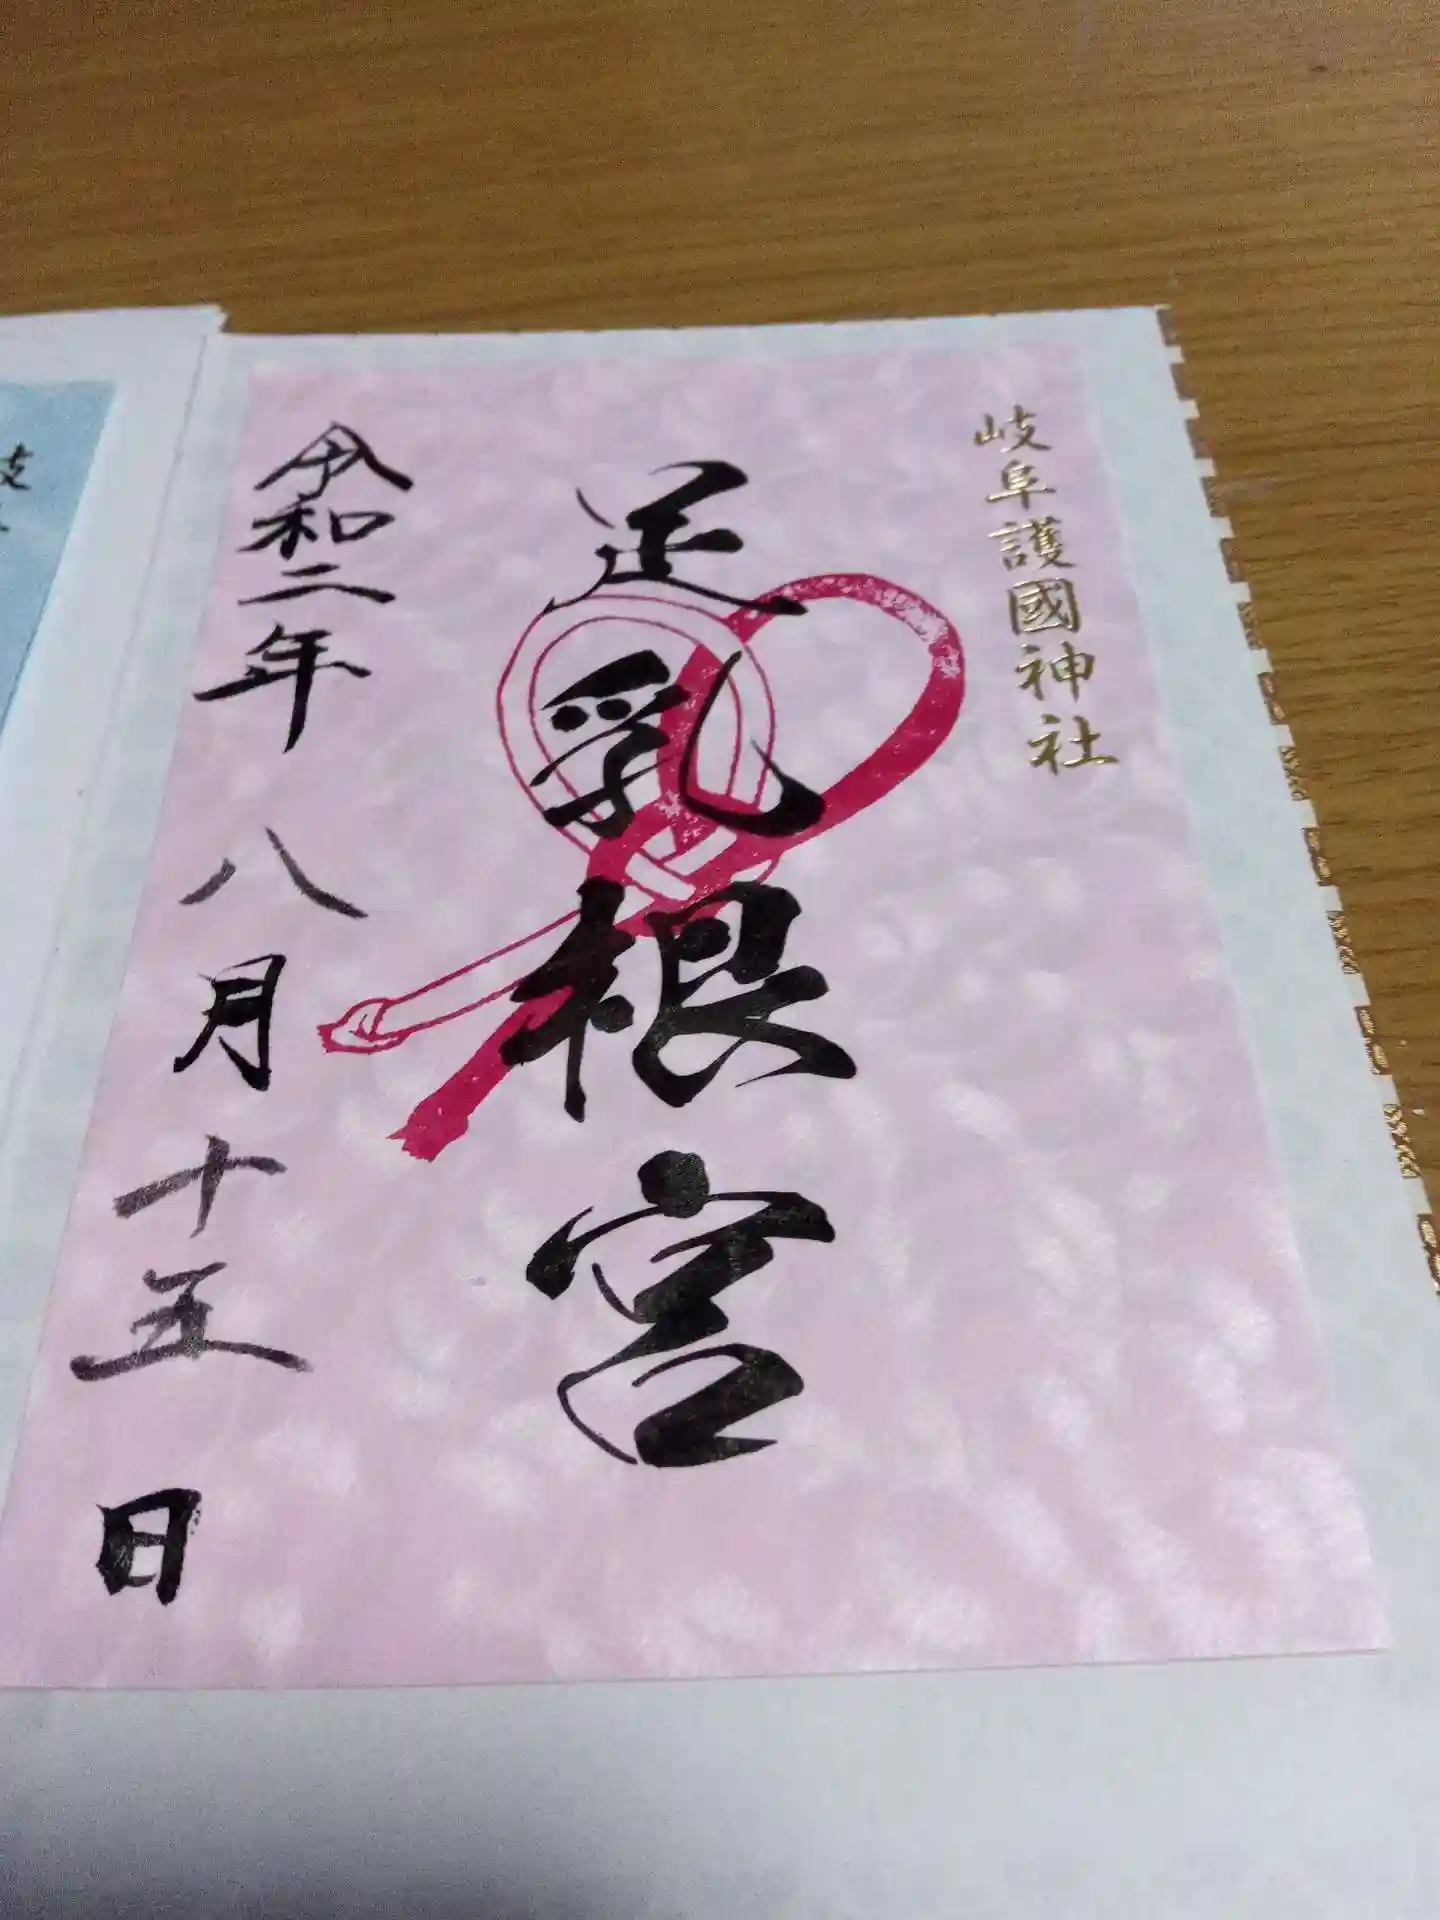 岐阜護國神社
足乳根宮
令和二年 八月十五日